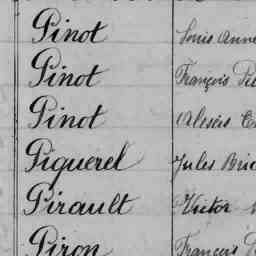 Pinot Louis Anne
Pinot François
Pinot
Piquerel Jules
Pirault Victor
Piron François